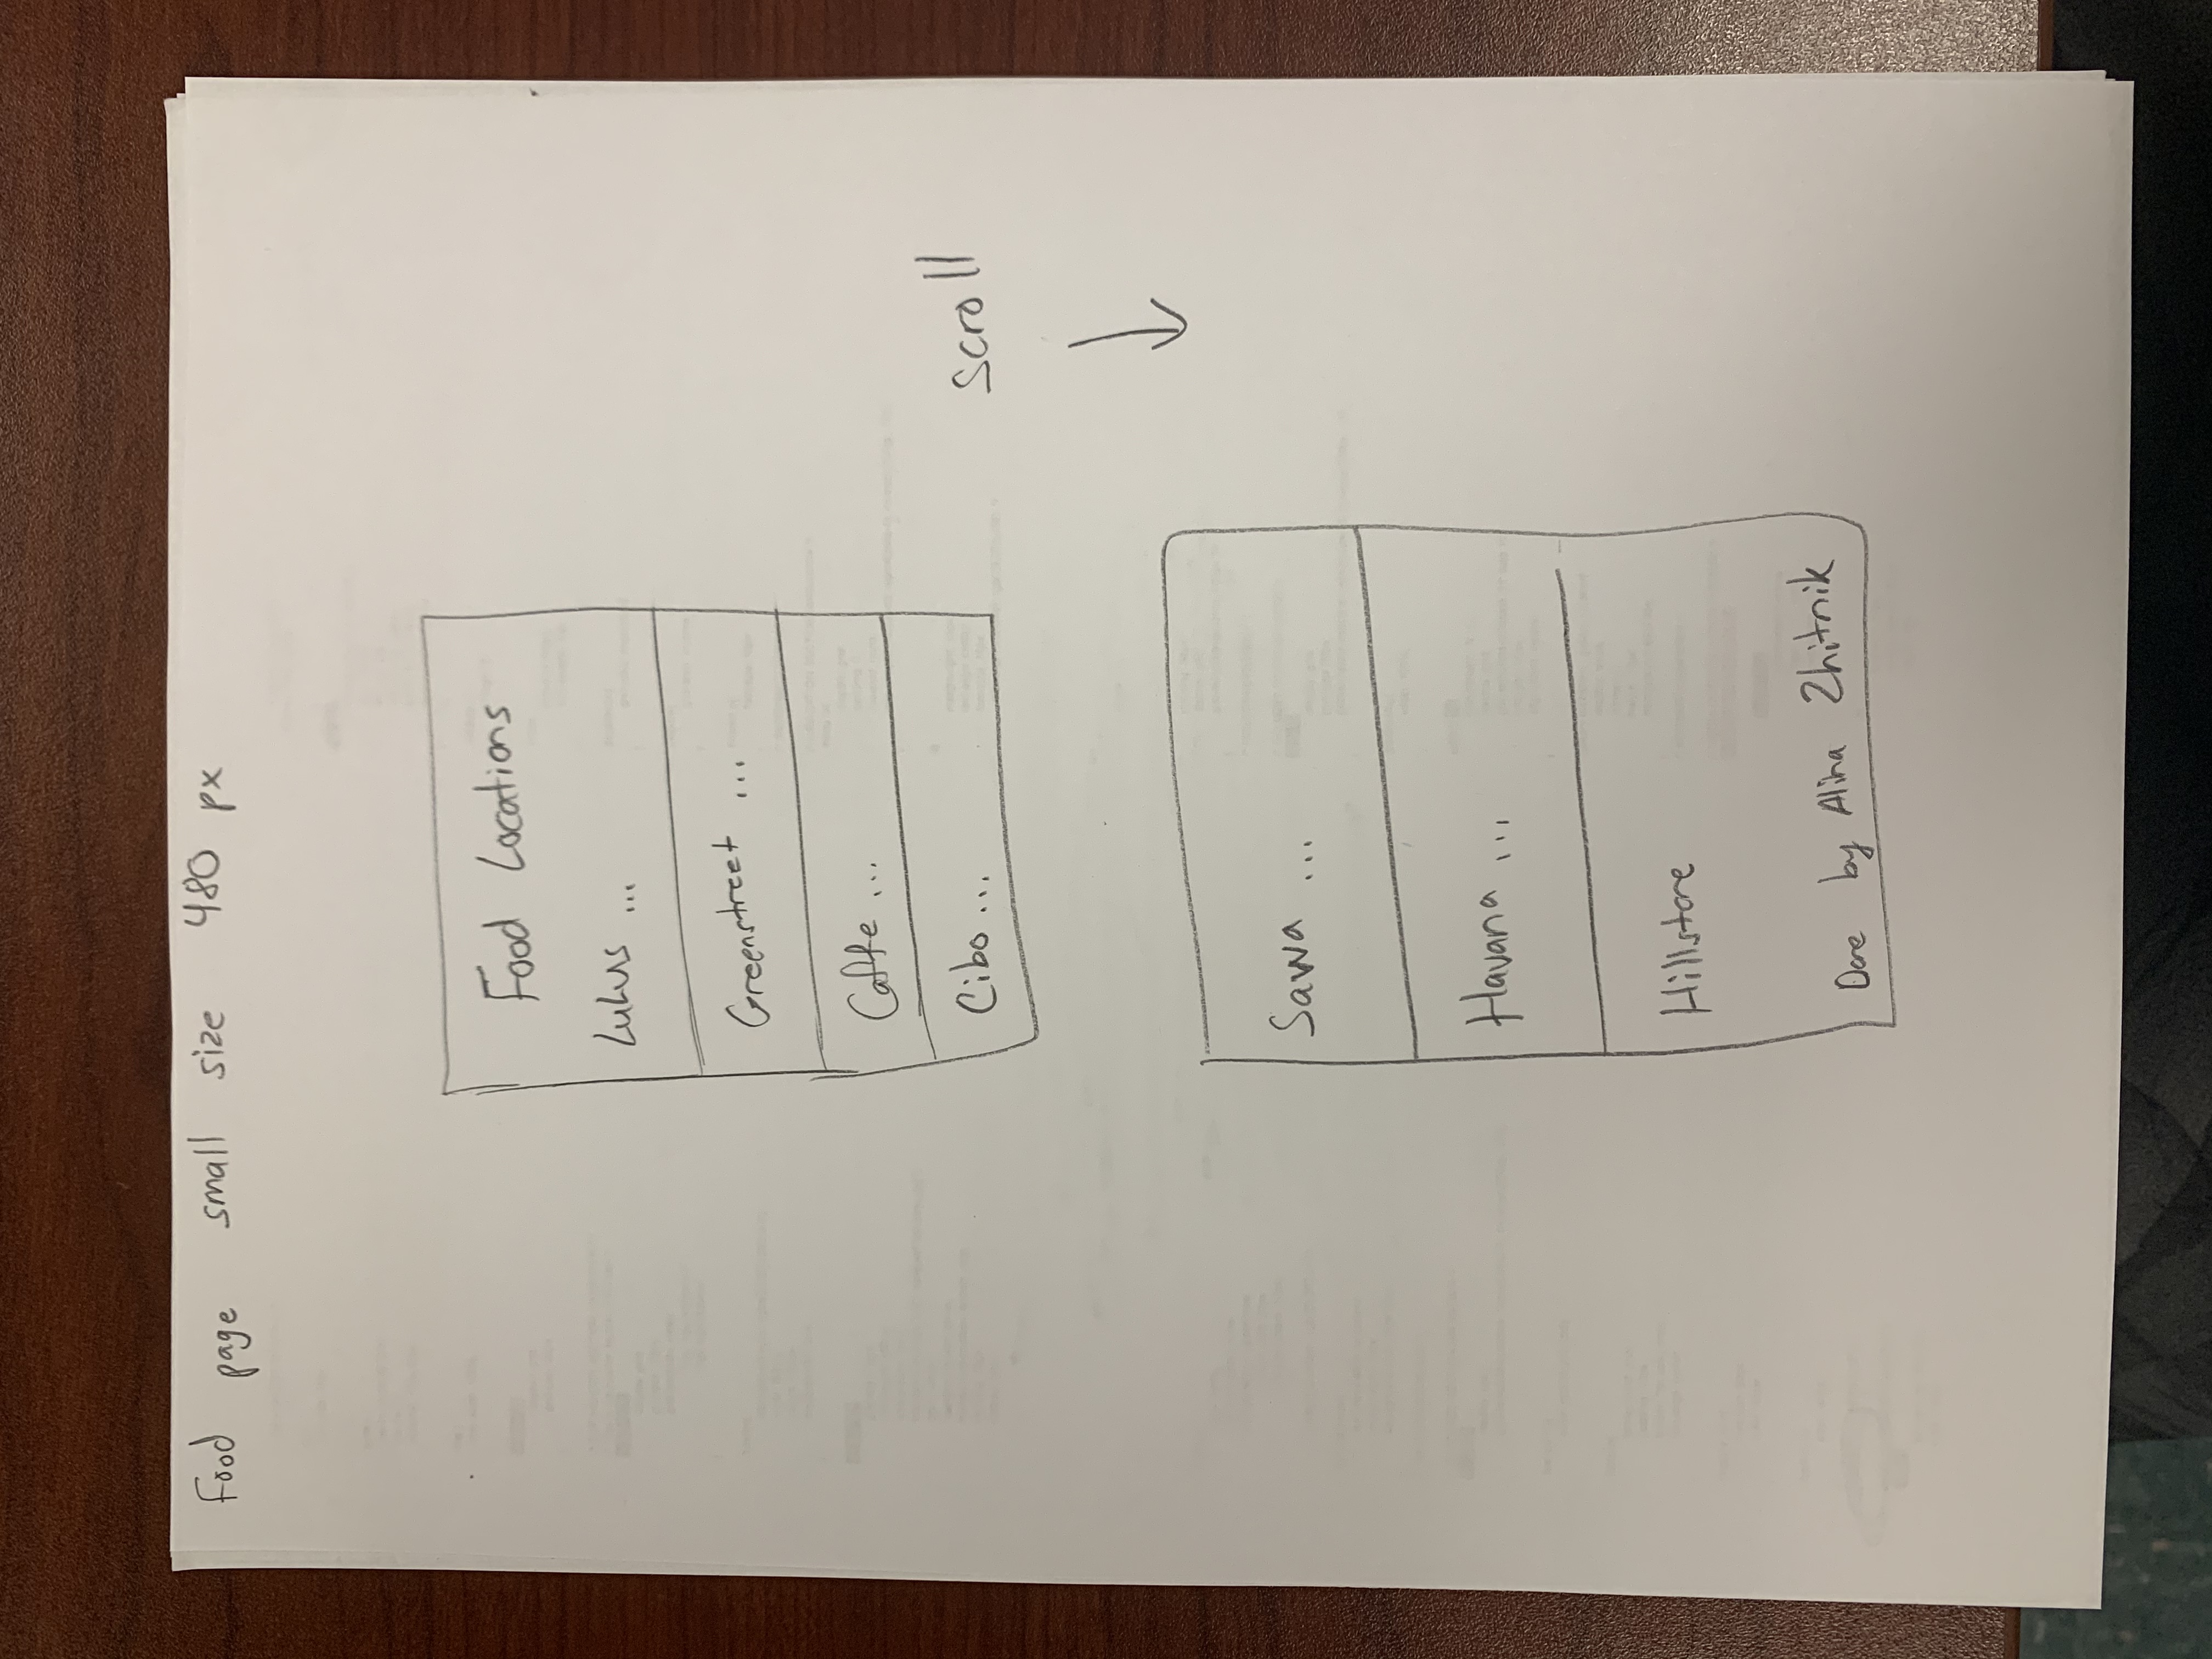 Food page small size 480 px
Food Locations
Lulus ...
Greenstreet ...
Caffe ...
Cibo ...
scroll
Sawa ...
Havana ...
Hillstone
Done by Alina Zhitnik